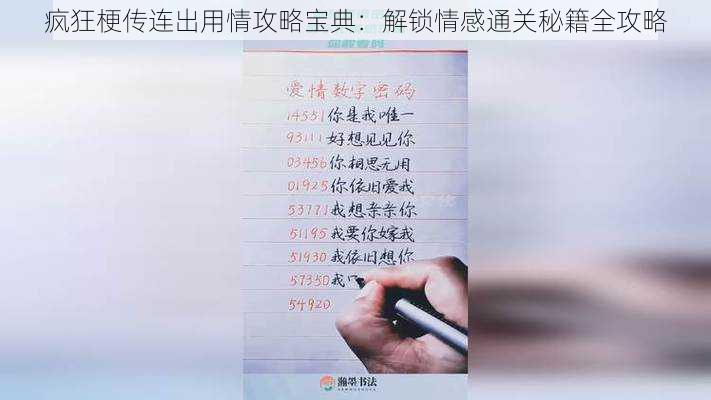 疯狂梗传连出用情攻略宝典：解锁情感通关秘籍全攻略
爱情数字密码
14551你是我唯一
93111好想见见你
03456你相思无用
01925你依旧爱我
53771我想亲亲你
51195我要你嫁我
51930我依旧想你
57350我只
54920
瀚墨书法